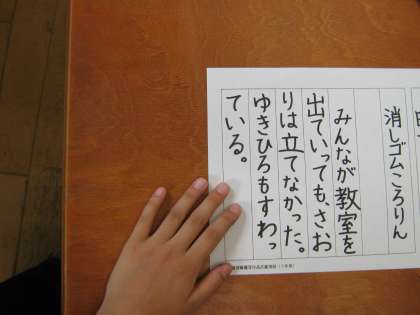 消しゴムころりん
みんなが教室を
出ていっても、さお
りは立てなかった。
ゆきひろもすわっ
ている。